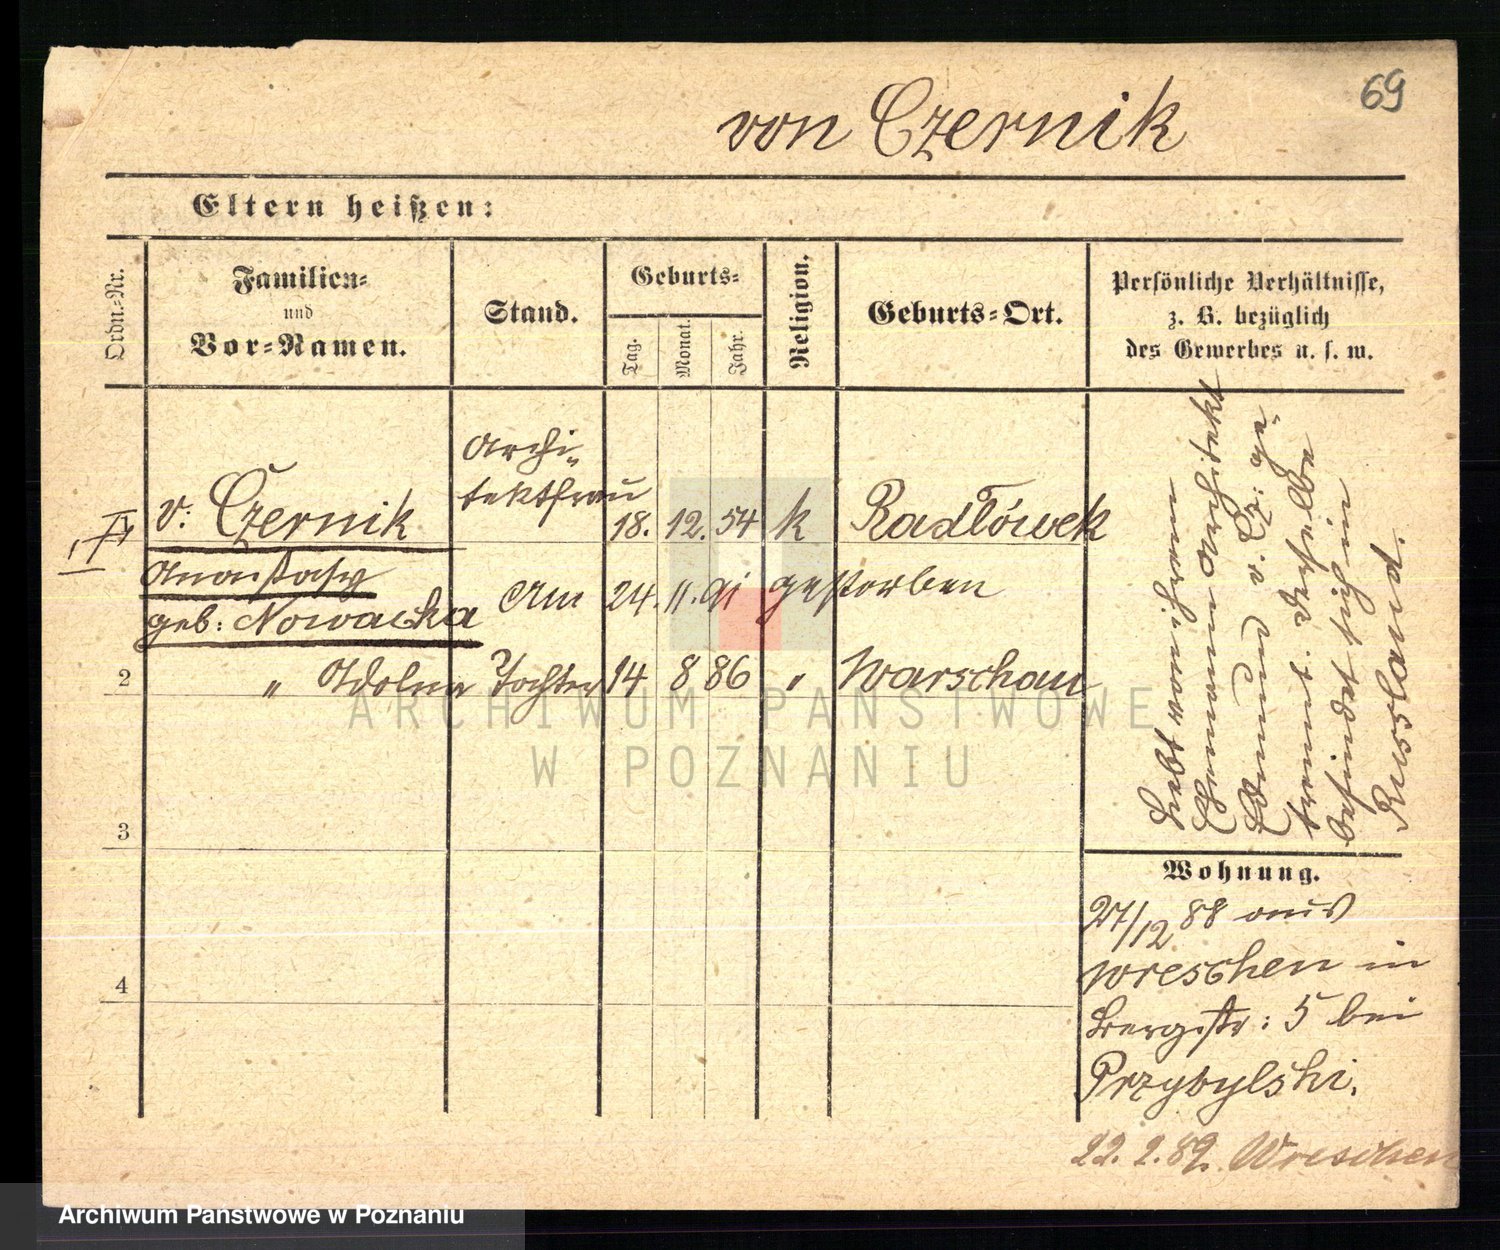 69
von Czernik
Eltern heißen:
Ordn.-Nr.
Familien-
und
Vor-Namen.
Stand.
Geburts-
Tag.
Monat.
Jahr.
Religion.
Geburts-Ort.
Persönliche Verhältnisse,
z. B. bezüglich
des Gewerbes u. s. w.
Archi-
tektfrau
v: Czernik
18. 12. 54 k Radłówek
Anastasy
geb: Nowacka
Am 24. 11. 91 gestorben
2 " Tochter 14 8 86 " Warschau
3
4
lebt von ihrem
Ehemann Architekt
v. Cz: ge-
trennt. Derselbe
befindet sich in
Russland.
Wohnung.
27/12 88 aus
Wreschen in
Bergstr: 5 bei
Przybylski.
22. 2. 89. Wreschen
ARCHIWUM PAŃSTWOWE
W POZNANIU
Archiwum Państwowe w Poznaniu